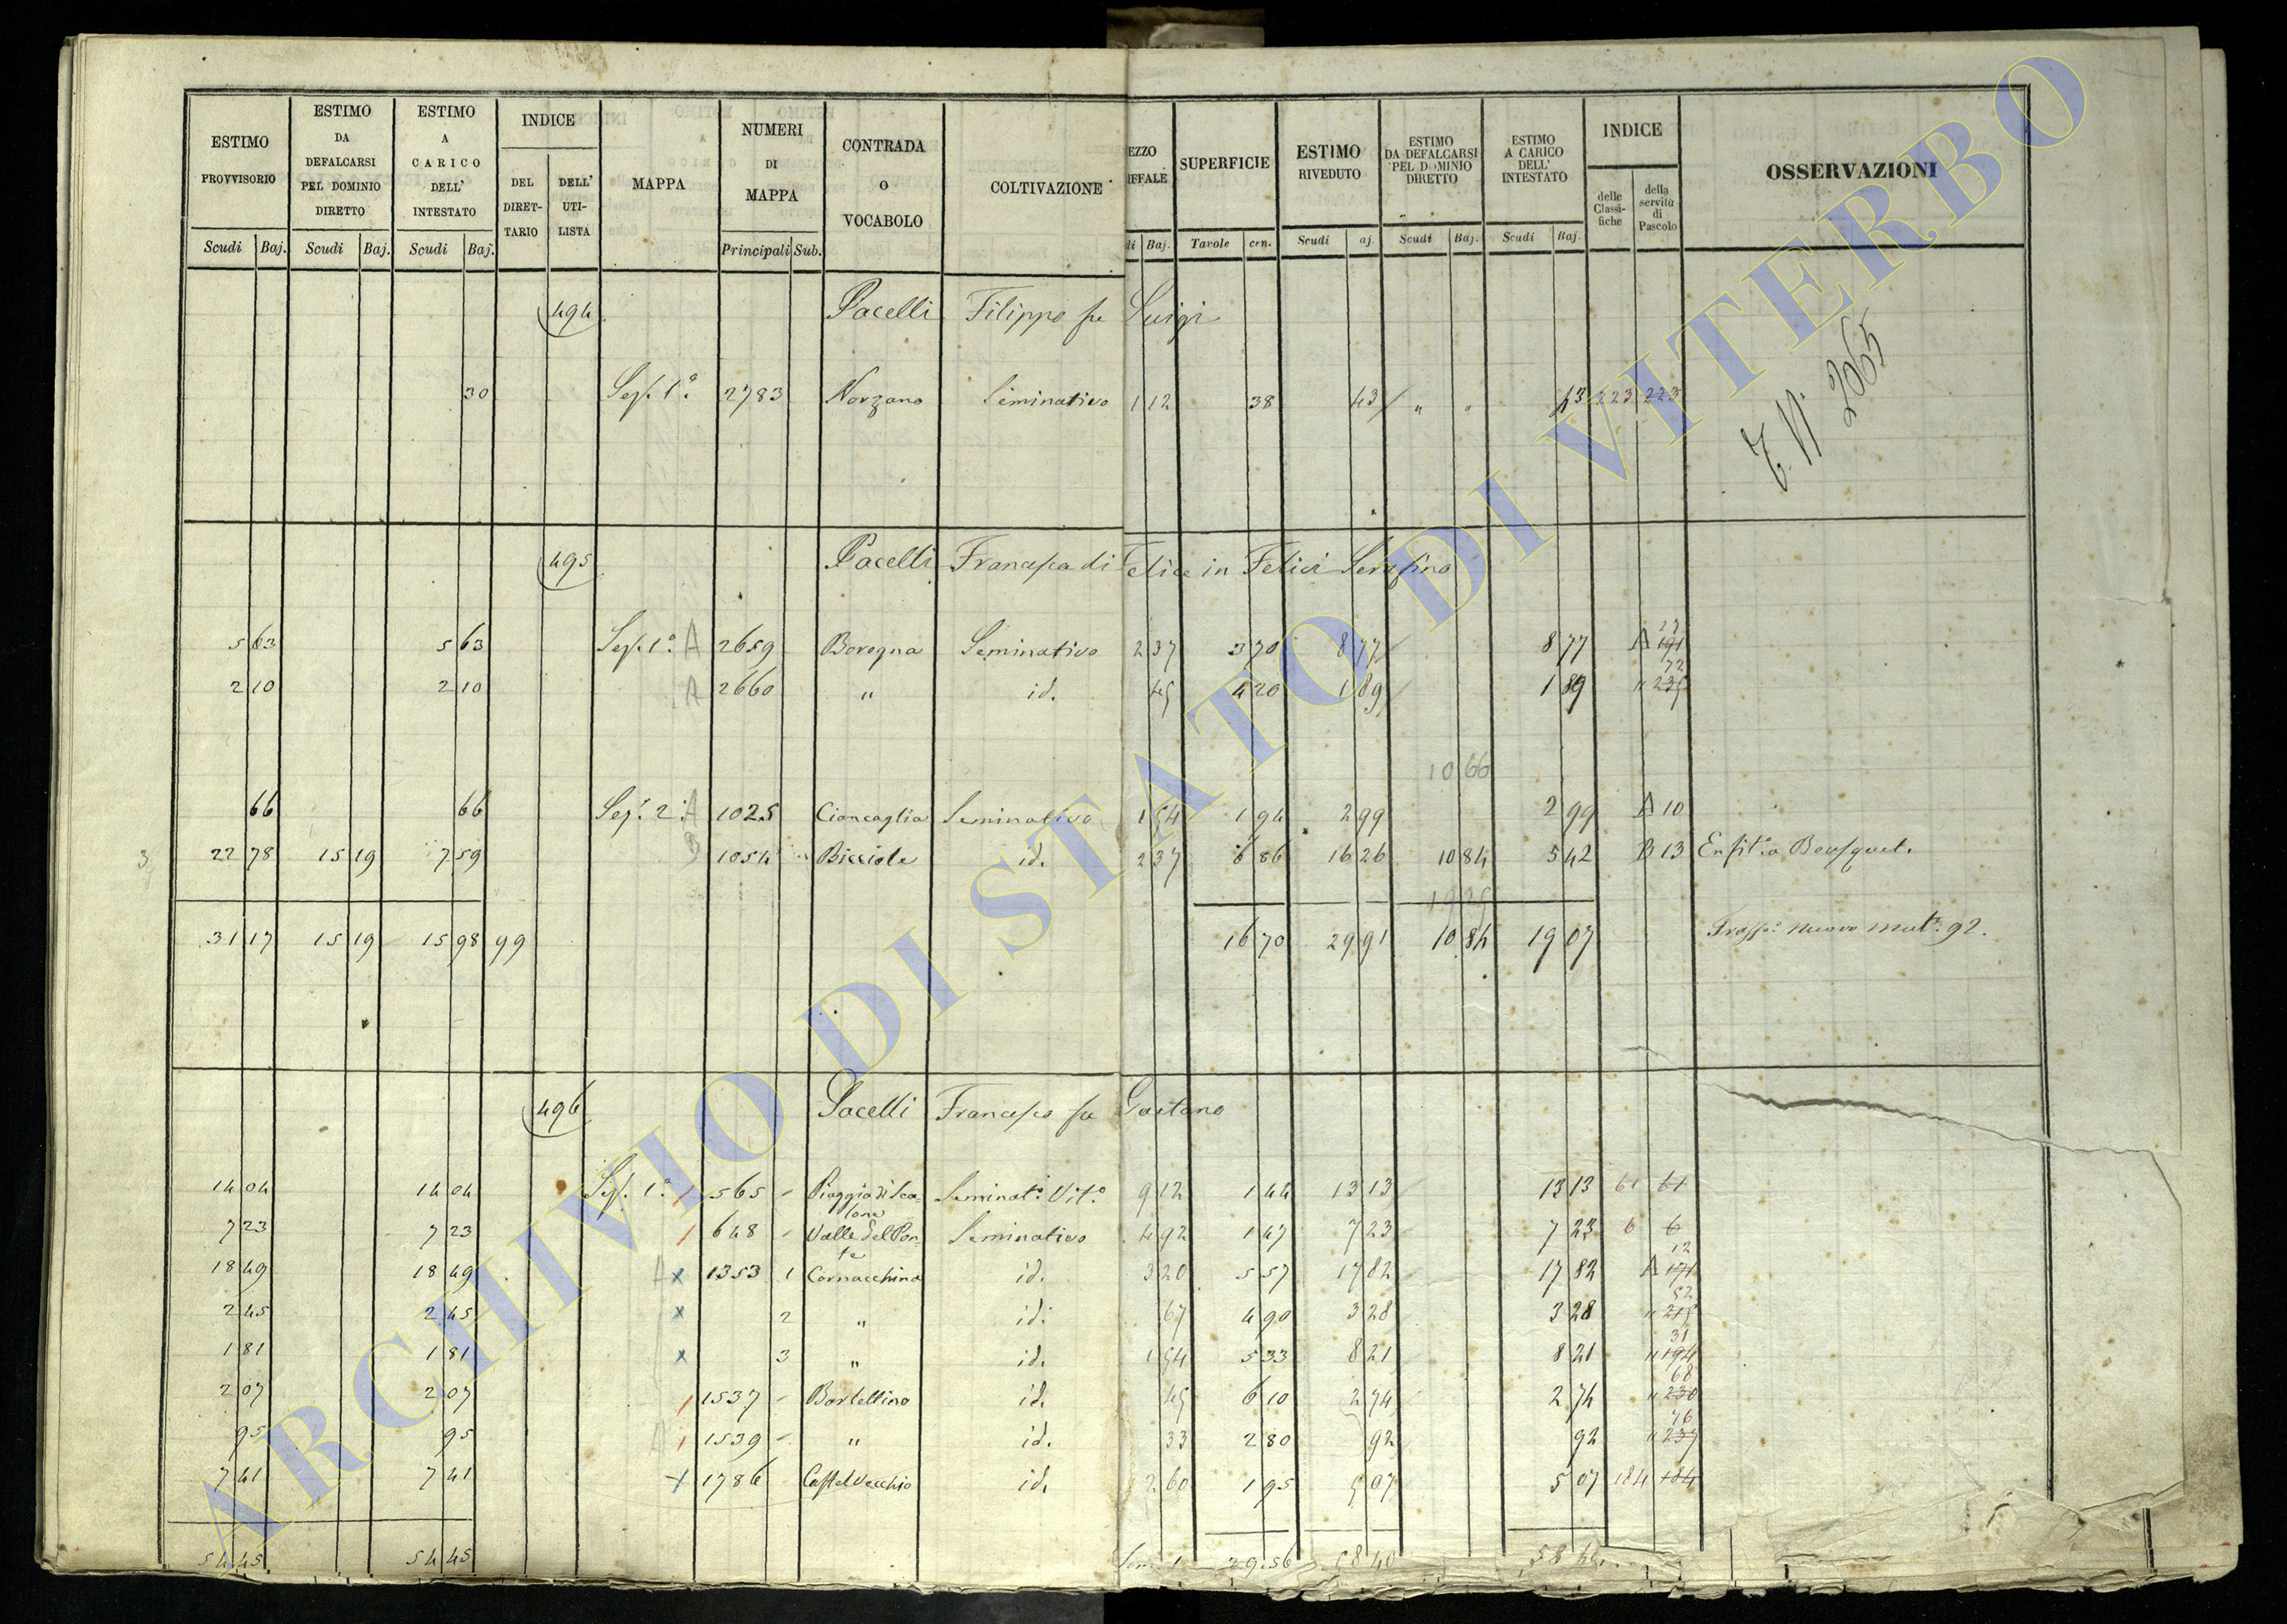 ESTIMO PROVVISORIO Scudi Baj. | ESTIMO DA DEFALCARSI PEL DOMINIO DIRETTO Scudi Baj. | ESTIMO A CARICO DELL' INTESTATO Scudi Baj. | INDICE DEL DIRETTARIO DELL' UTILISTA | MAPPA | NUMERI DI MAPPA Principali Sub. | CONTRADA O VOCABOLO | COLTIVAZIONE | EZZO IFFALE di Baj. | SUPERFICIE Tavole cen. | ESTIMO RIVEDUTO Scudi aj. | ESTIMO DA DEFALCARSI PEL DOMINIO DIRETTO Scudi Baj. | ESTIMO A CARICO DELL' INTESTATO Scudi Baj. | INDICE delle Classifiche della servitù di Pascolo | OSSERVAZIONI
494 Pacelli Filippo fu Luigi
30 Sez. 1ª 2783 Norzano Seminativo 1 12 38 43 " " 43 223 223 2065
495 Pacelli Francesca di Felice in Felici Serafino
5 63 5 63 Sez. 1ª A 2659 Boregna Seminativo 2 37 3 70 8 77 8 77 A 27 191
2 10 2 10 A 2660 " id. 45 4 20 1 89 1 89 " 72 235
10 66
66 66 Sez. 2ª A 1025 Cioncaglia Seminativo 1 54 1 94 2 99 2 99 A 10
22 78 15 19 7 59 B 1054 Bicciole id. 2 37 6 86 16 26 10 84 5 42 B 13 Enfit.a Bousquet.
31 17 15 19 15 98 99 16 70 29 91 10 84 19 07 nuovo 92.
496 Pacelli Francesco fu Gaetano
14 04 14 04 Sez. 1ª 565 - Piaggia di Sca lone Seminat.o Vit.o 9 12 1 44 13 13 13 13 61 61
7 23 7 23 648 - Valle del Pon te Seminativo 4 92 1 47 7 23 7 23 6 6
18 49 18 49 A x 1353 1 Cornacchina id. 3 20 5 57 17 82 17 82 A 12 171
2 45 2 45 x 2 " id. 67 4 90 3 28 3 28 " 52 215
1 81 1 81 x 3 " id. 1 54 5 33 8 21 8 21 " 31 194
2 07 2 07 1537 - Bartellino id. 45 6 10 2 74 2 74 " 68 230
95 95 A 1539 - " id. 33 2 80 92 92 " 76 237
7 41 7 41 x 1786 Castelvecchio id. 2 60 1 95 5 07 5 07 184 184
54 45 54 45 29 56 58 40
ARCHIVIO DI STATO DI VITERBO